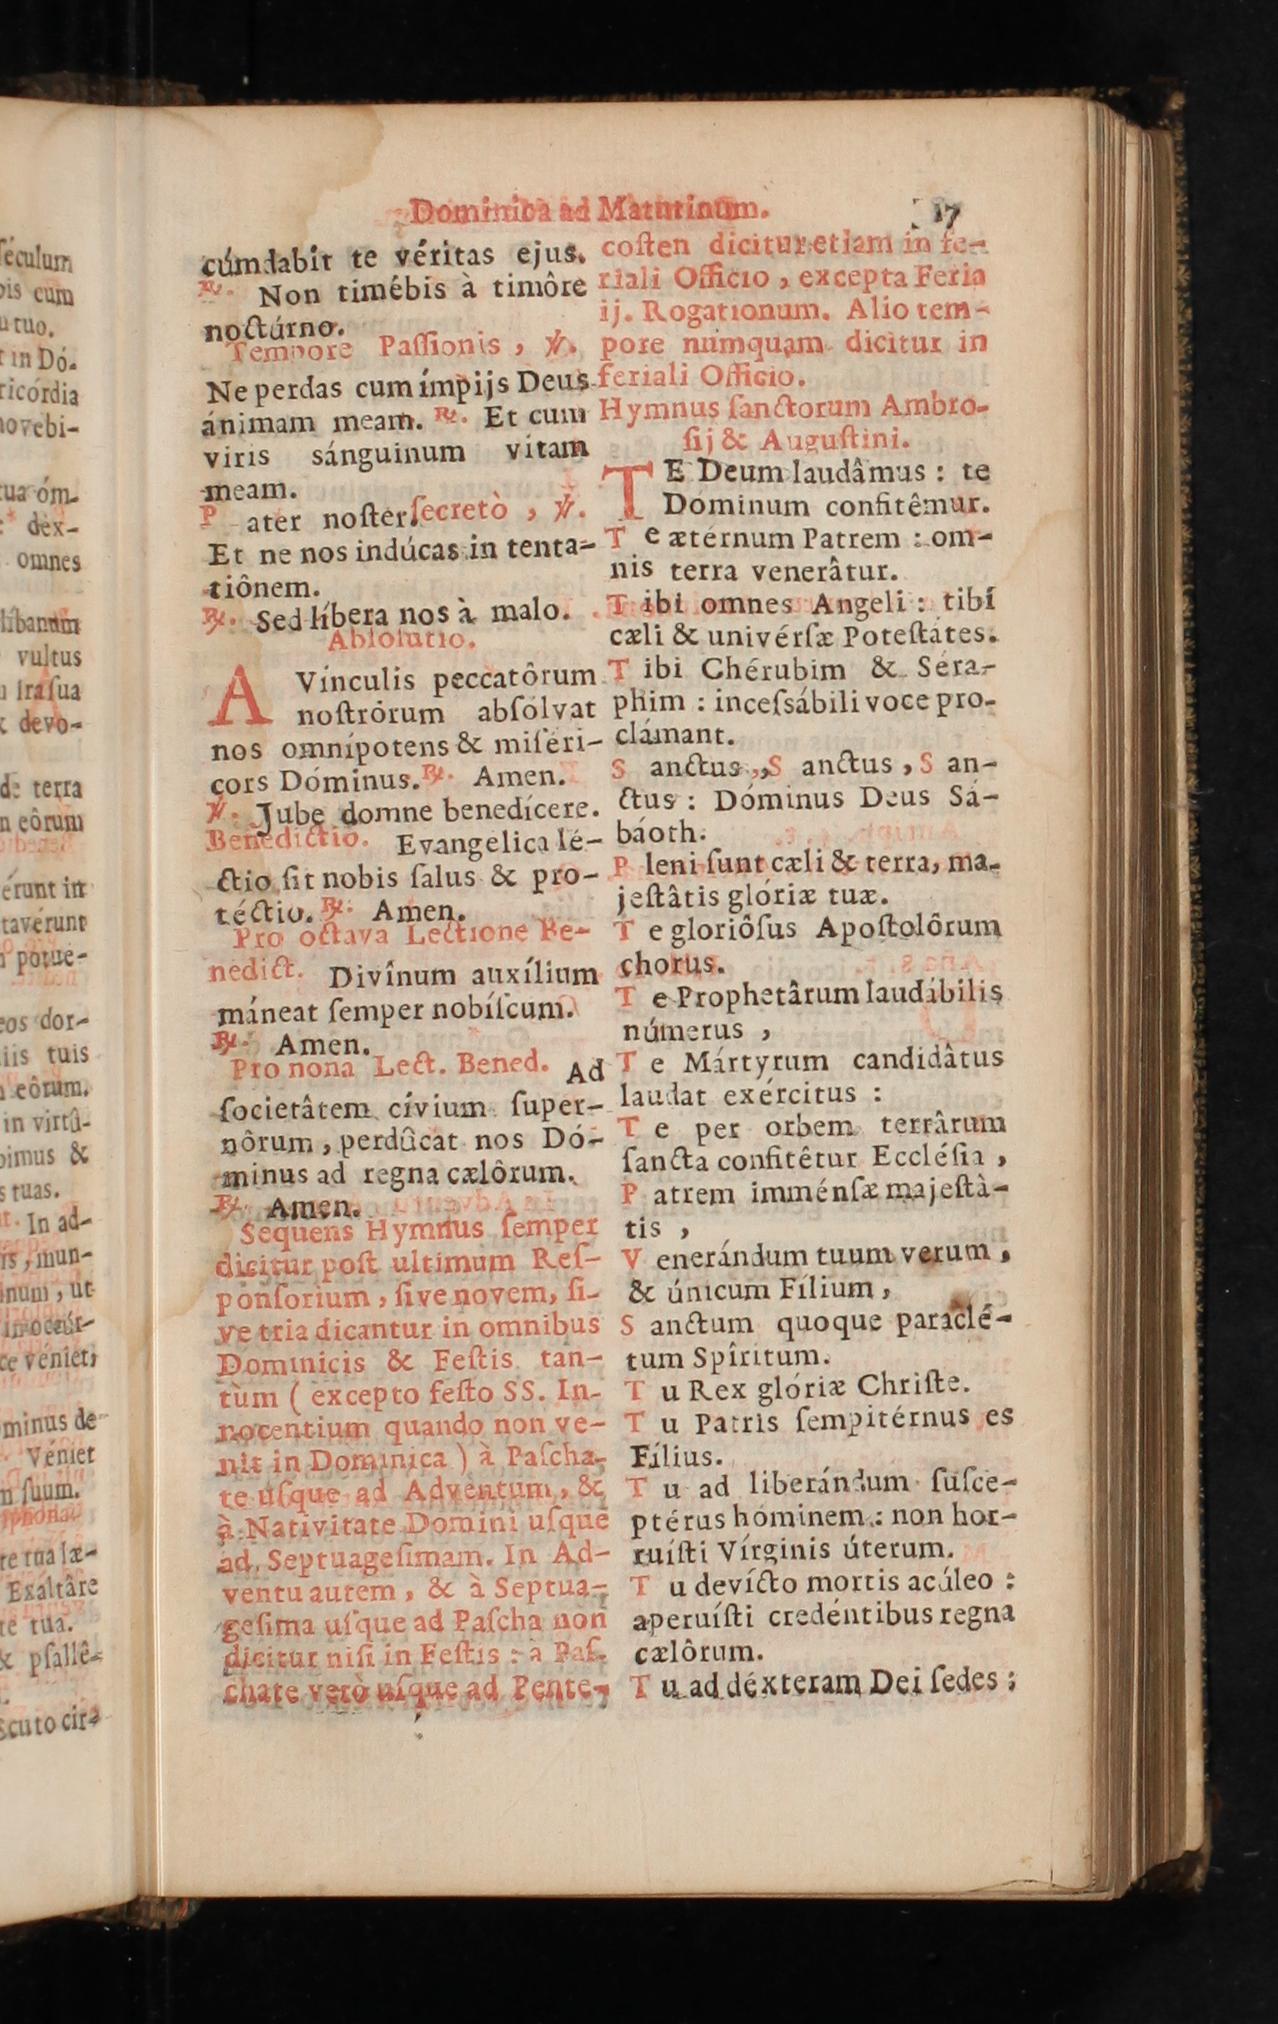 Dominica ad Matutinum. 17
cúmdabit te véritas ejus.
℟. Non timébis à timôre
noctúrno.
Tempore Paſſionis, ℣.
Ne perdas cum ímpijs Deus
ánimam meam. ℟. Et cum
viris sánguinum vitam
meam.
P ater noſter ſecretò, ℣.
Et ne nos indúcas in tenta-
tiônem.
℟. Sed líbera nos à malo.
Abſolutio.
A Vínculis peccatôrum
noſtrôrum abſólvat
nos omnípotens & miſéri-
cors Dóminus. ℟. Amen.
℣. Jube domne benedícere.
Benedictio. Evangelica lé-
ctio ſit nobis ſalus & pro-
téctio. ℟. Amen.
Pro octava Lectione Be-
nedict. Divînum auxílium
máneat ſemper nobíſcum.
℟. Amen.
Pro nona Lect. Bened. Ad
ſocietâtem cívium ſuper-
nôrum, perdûcat nos Dó-
minus ad regna cælôrum.
℟. Amen.
Sequens Hymnus ſemper
dicitur poſt ultimum Reſ-
ponſorium, ſive novem, ſi-
ve tria dicantur in omnibus
Dominicis & Feſtis tan-
tùm ( excepto feſto SS. In-
nocentium quando non ve-
nit in Dominica ) à Paſcha-
te uſque ad Adventum, &
à Nativitate Domini uſque
ad Septuageſimam. In Ad-
ventu autem, & à Septua-
geſima uſque ad Paſcha non
dicitur niſi in Feſtis : à Paſ-
chate verò uſque ad Pente-
coſten dicitur etiam in fe-
riali Officio, excepta Feria
ij. Rogationum. Alio tem-
pore numquam dicitur in
feriali Officio.
Hymnus ſanctorum Ambro-
ſij & Auguſtini.
TE Deum laudâmus : te
Dóminum confitêmur.
T e ætérnum Patrem : om-
nis terra venerâtur.
T ibi omnes Angeli : tibi
cæli & univérſæ Poteſtátes.
T ibi Chérubim & Séra-
phim : inceſsábili voce pro-
clámant.
S anctus, S anctus, S an-
ctus : Dóminus Deus Sá-
báoth.
P leni ſunt cæli & terra, ma-
jeſtâtis glóriæ tuæ.
T e gloriôſus Apoſtolôrum
chorus.
T e Prophetârum laudábilis
númerus,
T e Mártyrum candidâtus
laudat exércitus :
T e per orbem terrârum
ſancta confitêtur Eccléſia,
P atrem imménſæ majeſtà-
tis,
V enerándum tuum verum,
& únicum Fílium,
S anctum quoque paraclé-
tum Spíritum.
T u Rex glóriæ Chriſte.
T u Patris ſempitérnus es
Fílius.
T u ad liberándum ſuſce-
ptérus hóminem : non hor-
ruíſti Vírginis úterum.
T u devícto mortis acúleo :
aperuíſti credéntibus regna
cælôrum.
T u ad déxteram Dei ſedes :